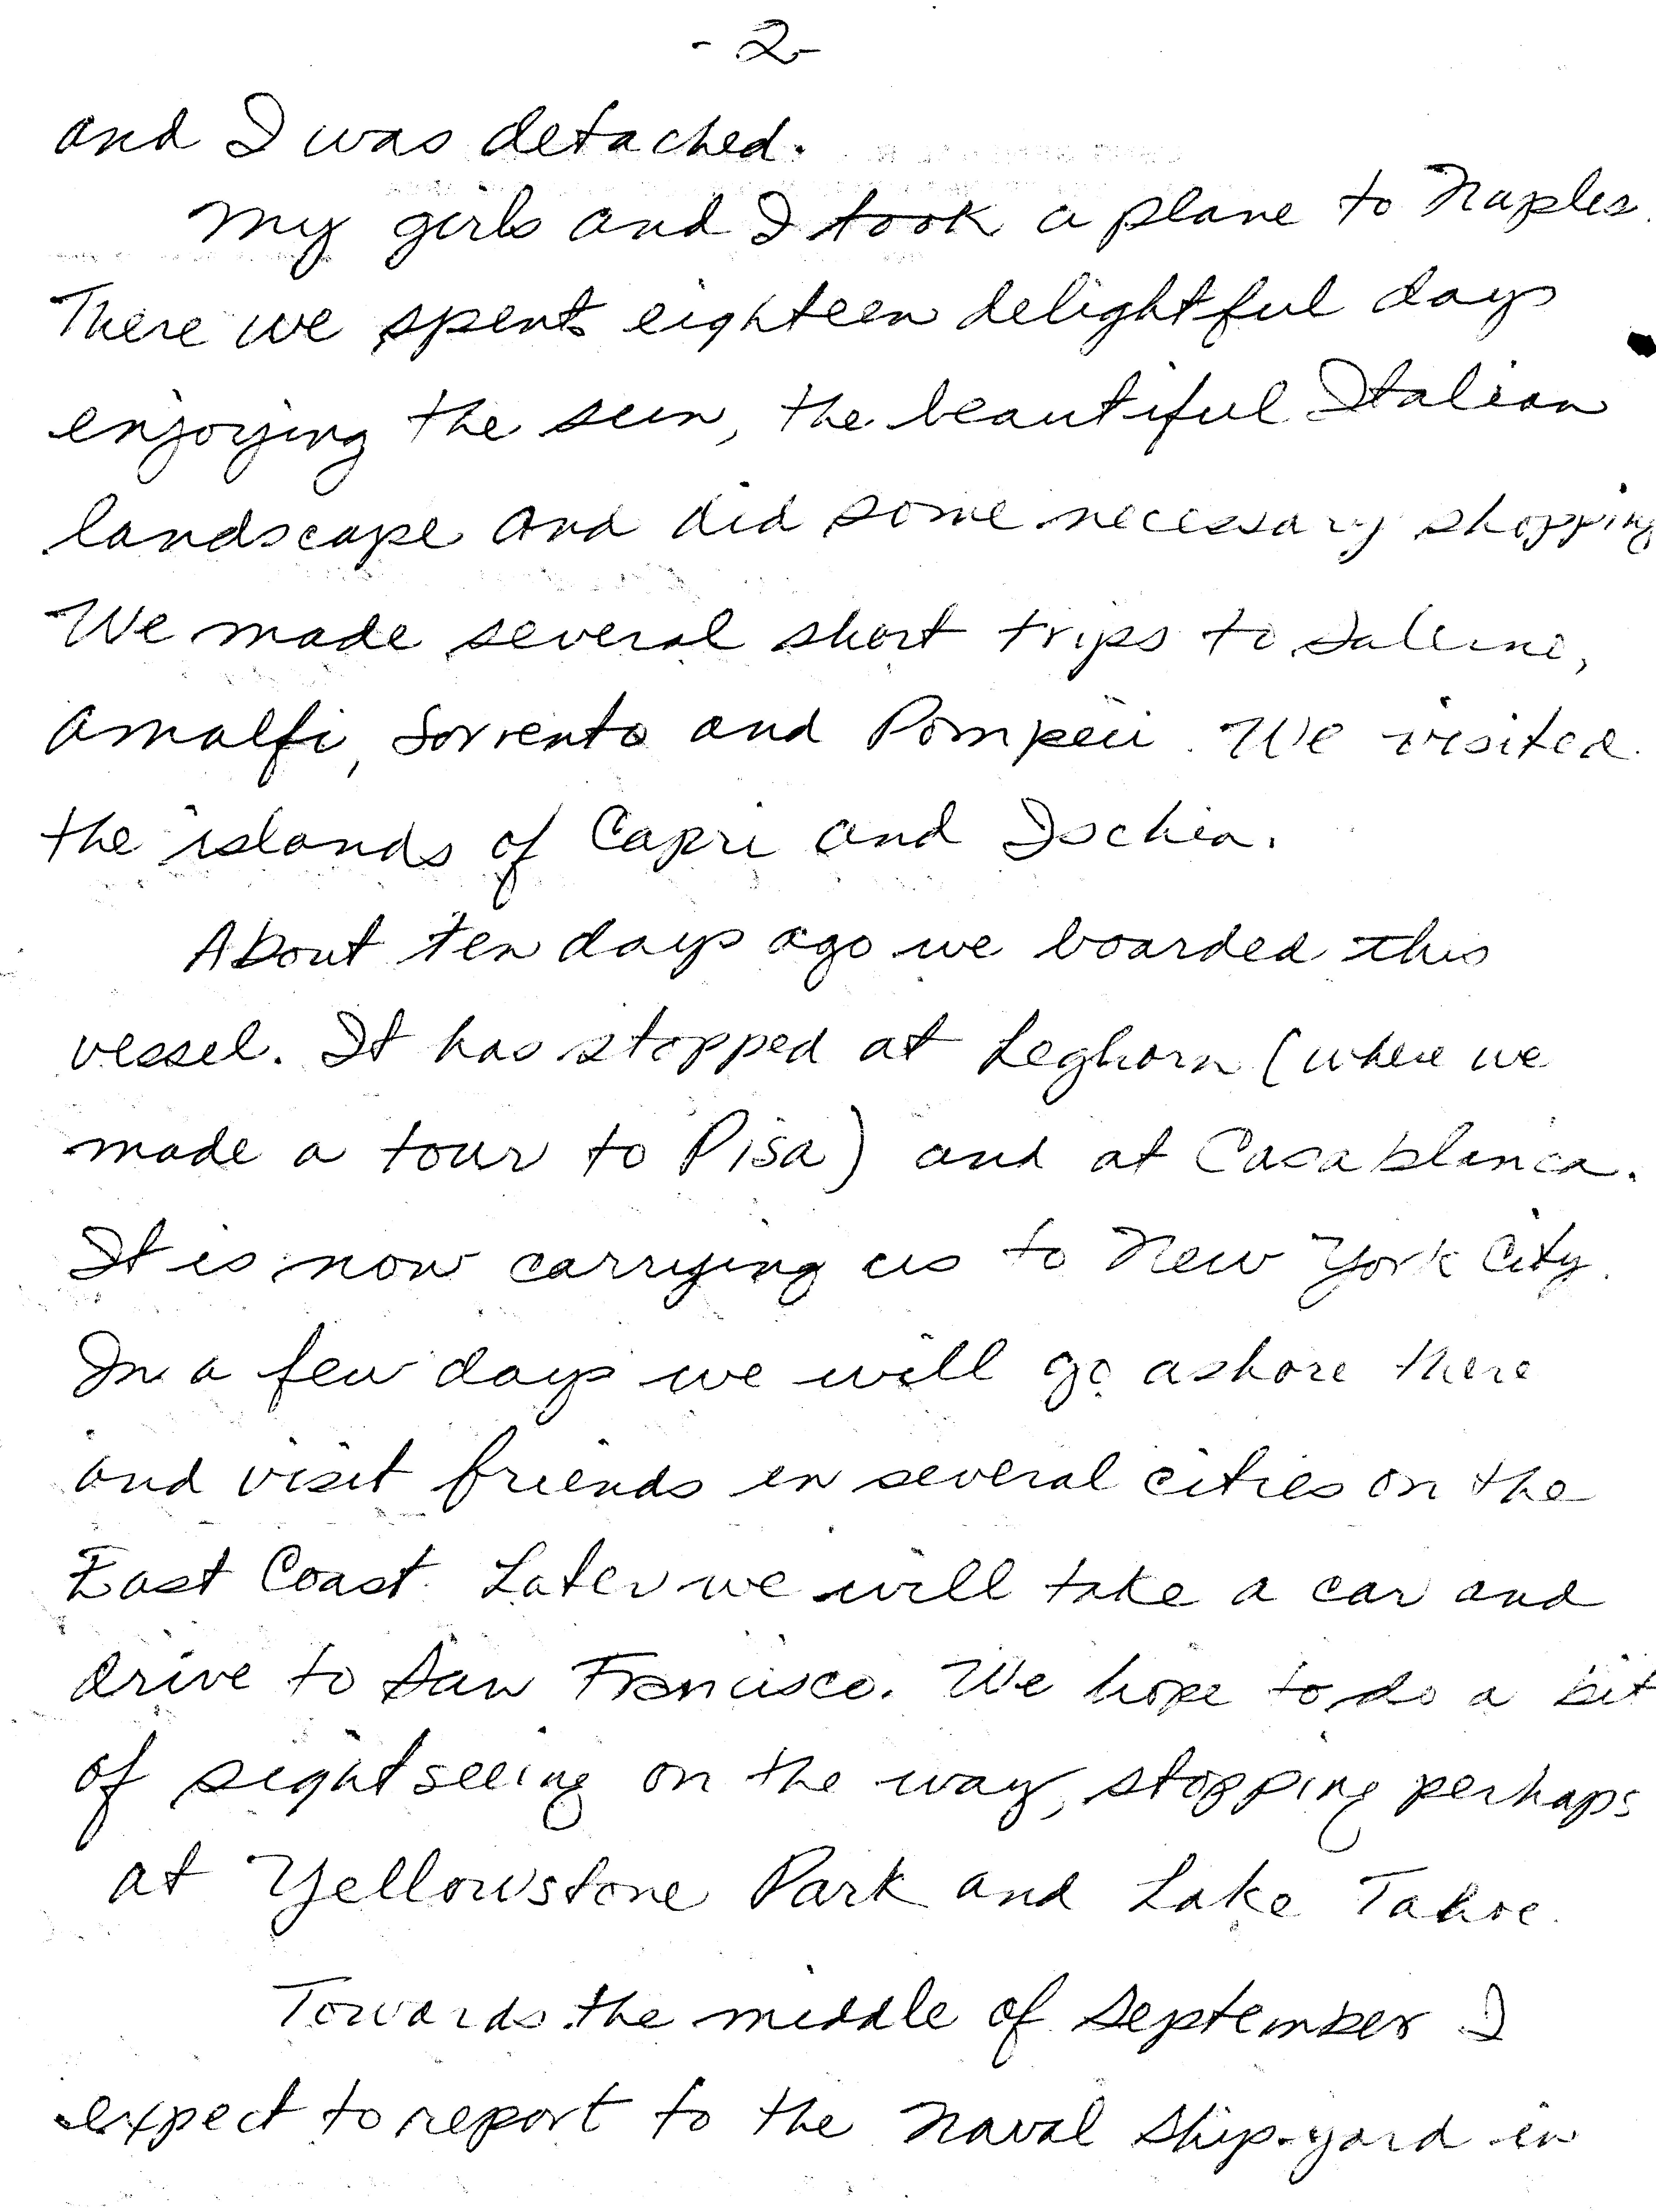 - 2 -
and I was detached.
My girls and I took a plane to Naples.
There we spent eighteen delightful days
enjoying the sun, the beautiful Italian
landscape and did some necessary shopping
We made several short trips to Salerno,
Amalfi, Sorrento and Pompeii. We visited
the islands of Capri and Ischia.
About ten days ago we boarded this
vessel. It has stopped at Leghorn (where we
made a tour to Pisa) and at Casablanca.
It is now carrying us to New York City.
In a few days we will go ashore there
and visit friends in several cities on the
East Coast. Later we will take a car and
drive to San Francisco. We hope to do a bit
of sightseeing on the way, stopping perhaps
at Yellowstone Park and Lake Tahoe.
Towards the middle of September I
expect to report to the Naval Ship-yard in